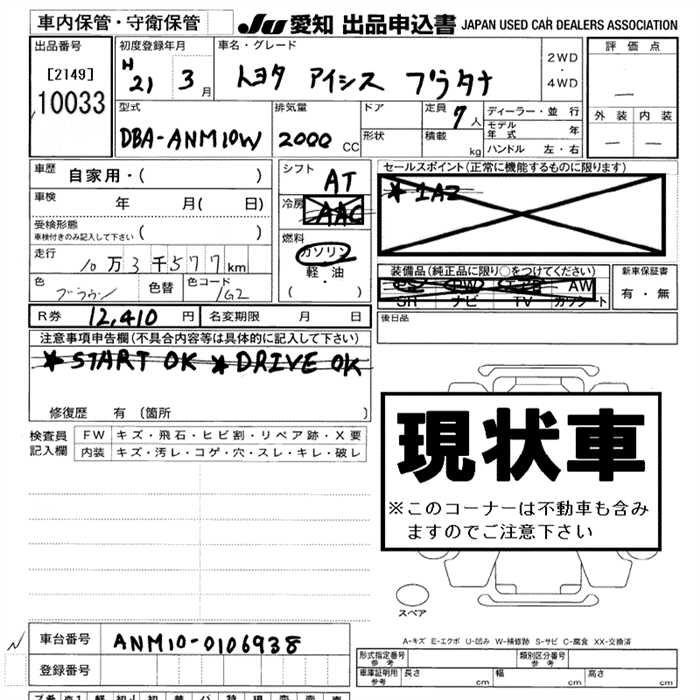 車内保管・守衛保管
JU 愛知 出品申込書 JAPAN USED CAR DEALERS ASSOCIATION
出品番号
[2149]
10033
初度登録年月
H
21 3月
車名・グレード
トヨタ アイシス プラタナ
2WD
・
4WD
評価点
—
外装 内装
— —
型式
DBA-ANM10W
排気量
2000 CC
ドア
形状
定員 7人
積載 kg
ディーラー・並行
モデル年式 年
ハンドル 左・右
車歴 自家用・( )
車検 年 月( 日)
受検形態
車検付きのみ記入して下さい ( )
走行
10万3千577km
色
ブラウン
色替
色コード
1G2
シフト
AT
冷房
AAC
燃料
ガソリン
軽・油
( ・ )
セールスポイント(正常に機能するものに限ります)
★1AZ
装備品(純正品に限り○をつけてください)
PS PW エアB AW
SR ナビ TV カワシート
新車保証書
有・無
R券 12,410 円
名変期限 月 日
後日品
注意事項申告欄(不具合内容等は具体的に記入して下さい)
★START OK ★DRIVE OK
修復歴 有 〔箇所 〕
検査員記入欄
FW キズ・飛石・ヒビ割・リペア跡・X要
内装 キズ・汚レ・コゲ・穴・スレ・キレ・破レ
現状車
※このコーナーは不動車も含み
ますのでご注意下さい
スペア
A-キズ E-エクボ U-凹み W-補修跡 S-サビ C-腐食 XX-交換済
車台番号 ANM10-0106938
登録番号
形式指定番号
参考
類別区分番号
参考
車庫証明用
参考
長さ cm 幅 cm 高さ cm